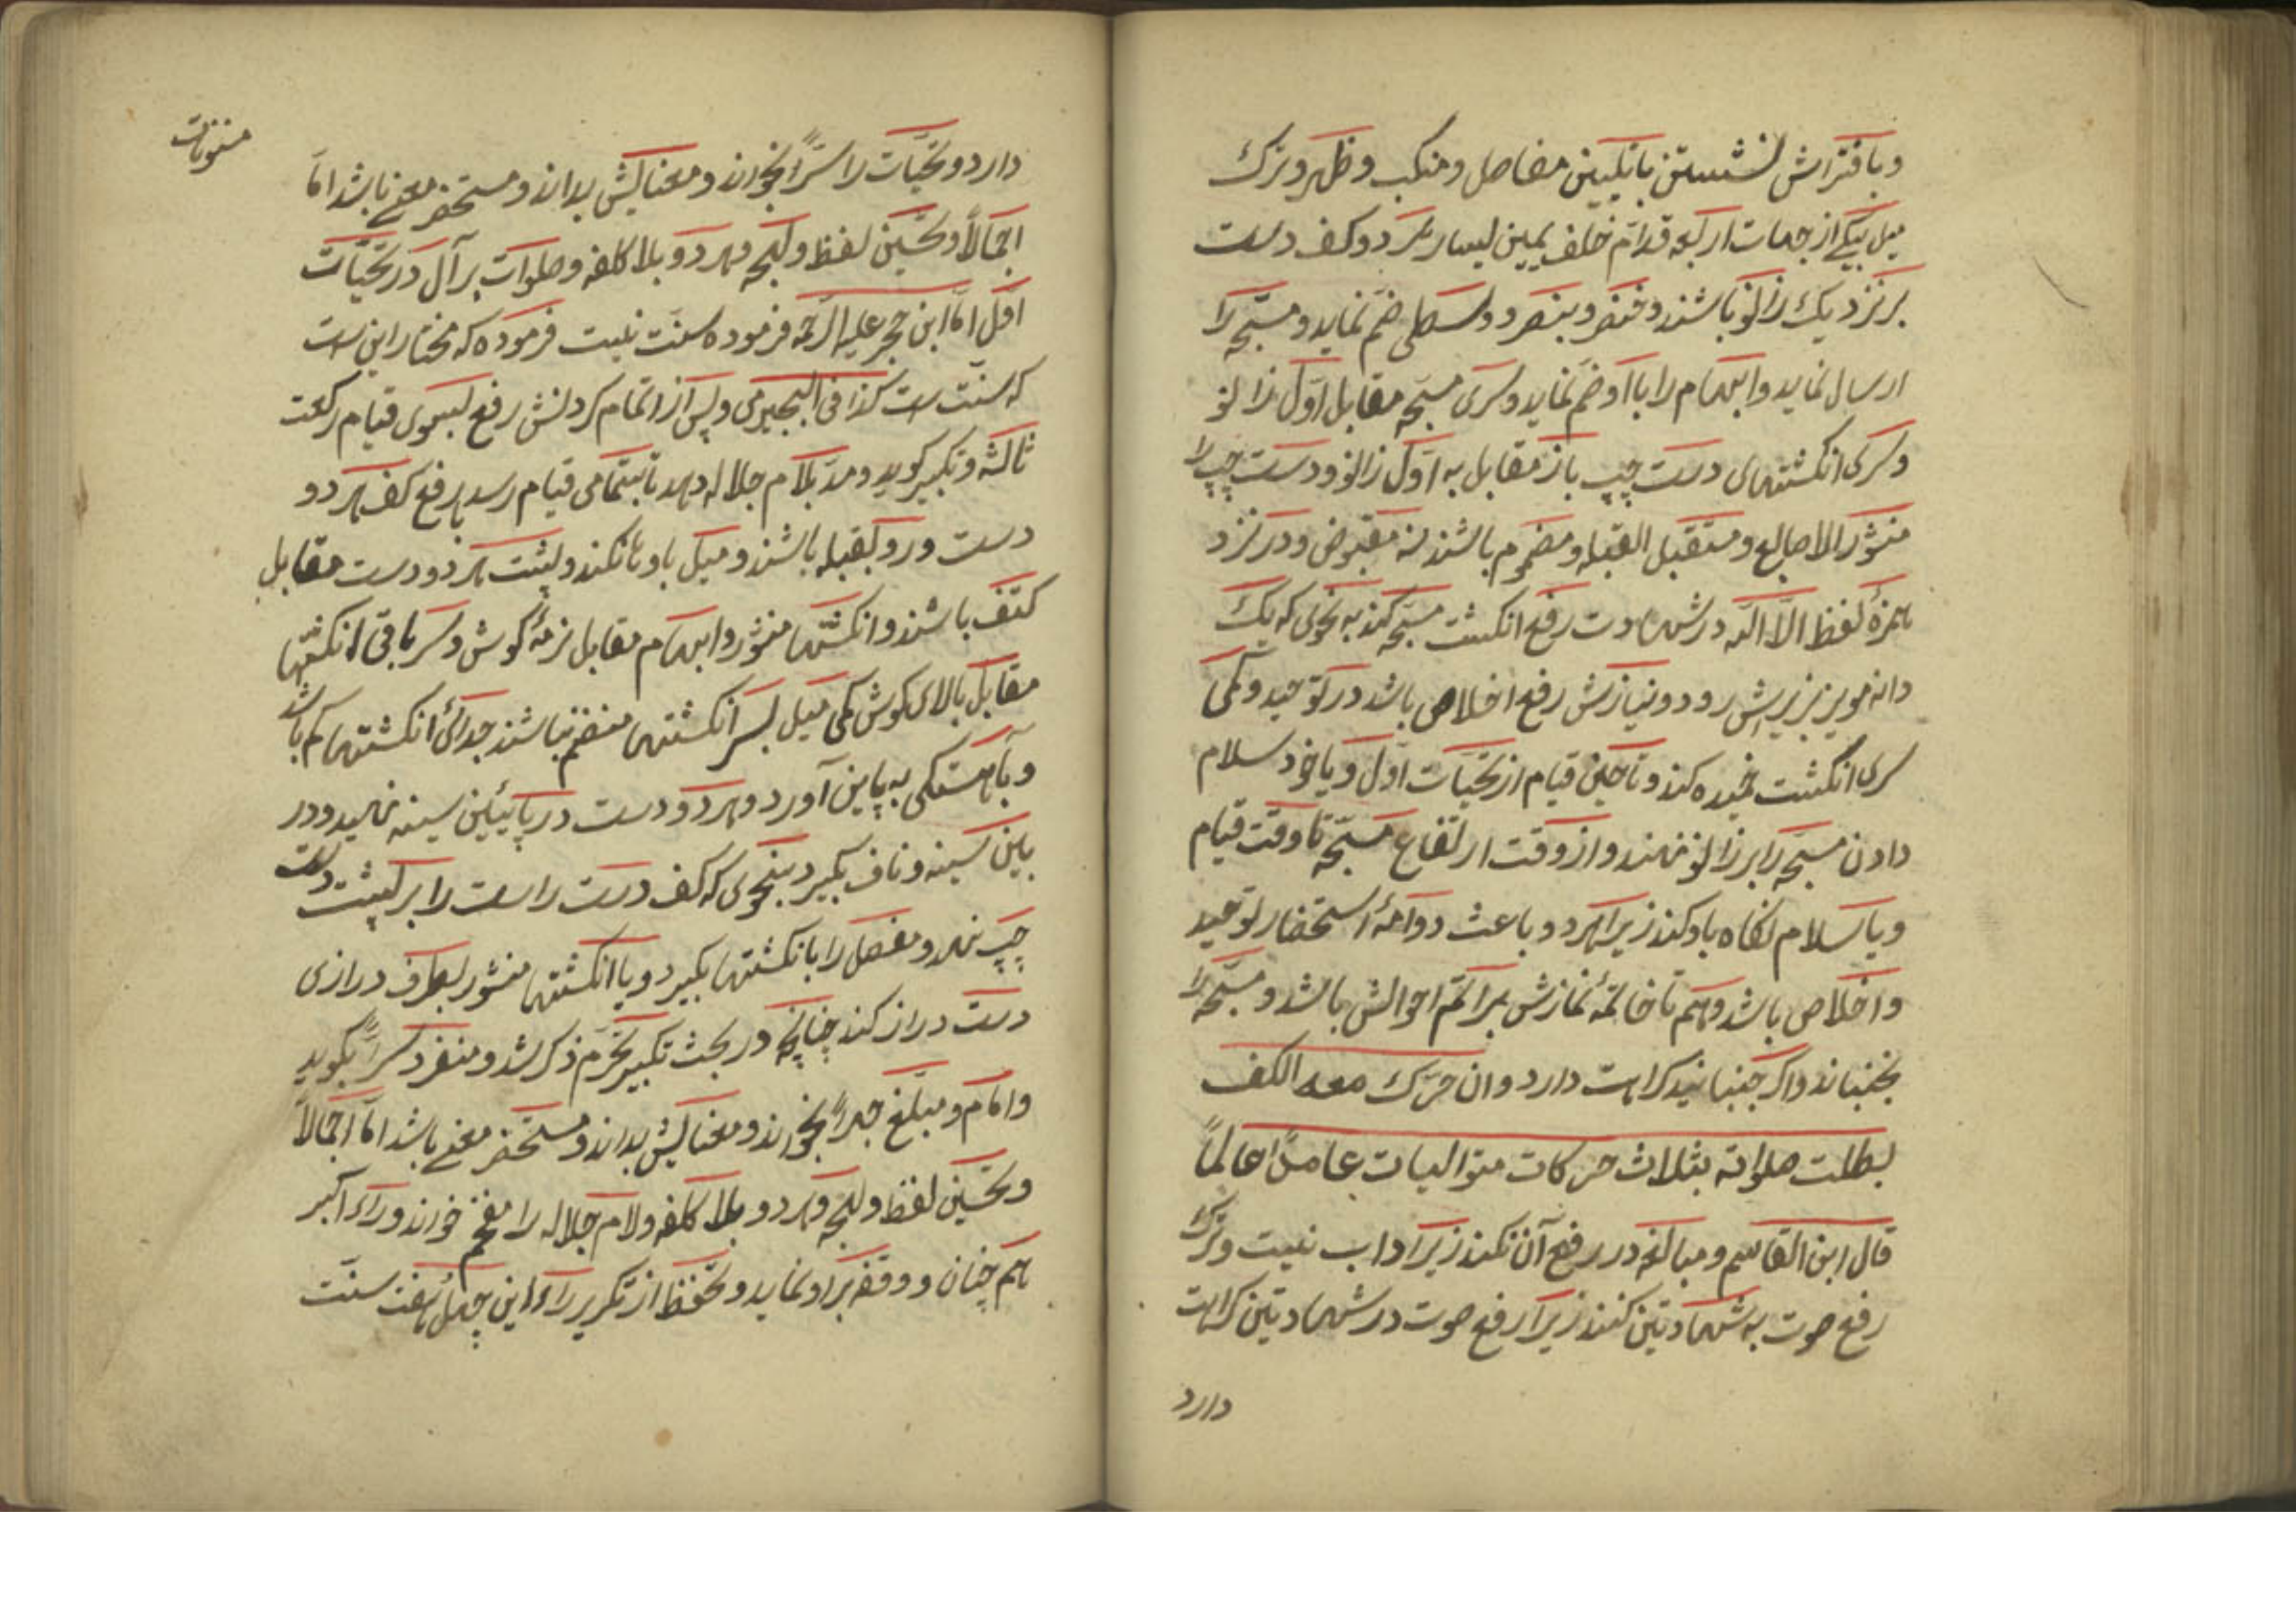 و بافتراش نشستن با تکیین مفاصل و منکب و ظهر و ترک
میل بیکی از جهات اربعه قدام خلف یمین لیسار هر دو کف دست
بر نزدیک زانو باشند و خنصر و بنصر و وسطی ضم نماید و مسبحه را
ارسال نماید و ابهام را با او ضم نماید و سری مسبحه مقابل اول زانو
و سری انکشتهای دست چپ باز مقابل به اول زانو و دست چپ را
منثور الاصابع و مستقبل القبله و مضموم باشند نه مقبوض و در نزد
همزهٔ لفظ الا الله در شهادت رفع انکشت مسبحه کند به نحوی که یک
دانه مویز بزیرش رود و نیازش رفع اخلاص باشد در توحید و کمی
سری انکشت خمیده کند و تا حین قیام از تحیات اول و یا خود سلام
دادن مسبحه را بر زانو ننهند و از وقت ارتفاع مسبحه تا وقت قیام
و یا سلام نکاه باو کند زیرا هر دو باعث دوامهٔ استحضار توحید
و اخلاص باشد و هم تا خاتمهٔ نمازش بر اتم احوالش باشد و مسبحه را
نجنباند و اکر جنبانید کراهت دارد وان حرک معه الکف
بطلت صلواته بثلاث حرکات متوالیات عامداً عالماً
قال ابن القاسم و مبالغه در رفع آن نکند زیرا داب نیست و ترک
رفع صوت به شهادتین کنند زیرا رفع صوت در شهادتین کراهت
دارد
مسنونات
دارد و تحیّات را سرّاً بخواند و معنایش بداند و مستحضر معنی باشد امّا
اجمالاً و تحسین لفظ و لهجه و هر دو بلا کلفه و صلوات بر آل در تحیّات
اوّل امّا ابن حجر علیه الرحمه فرموده سنّت نیست فرموده که مختار این ست
که سنّت ست کذا فی البجیرمی و پس از اتمام کردنش رفع لبسوی قیام رکعت
ثالثه و تکبیر کوید و مدّ بلام جلاله دهد تا بتمامی قیام رسد برفع کف هر دو
دست و رو بقبله باشند و میل باو ها نکند و پشت هر دو دست مقابل
کتف باشند و انکشتها منثور و ابهام مقابل نرمهٔ کوش و سر باقی انکشتها
مقابل بالای کوش کمی میل بسر انکشتها منضم نباشند جدائی انکشتها کم باشد
و بآهستکی به پاین آورد و هر دو دست در پائین سینه نهید و در
باین سینه و ناف بکیرد بنحوی که کف دست راست را بر پشت دست
چپ نهد و مفصل را بانکشتها بکیرد و یا انکشتها منثور بطرف درازی
دست دراز کند چنانچه در بحث تکبیر تحرّم ذکر شد و منفرد سرّاً بکوید
و امام و مبلّغ جهراً بخواند و معنایش بداند و مستحضر معنی باشد امّا اجمالاً
و تحسین لفظ و لهجه و هر دو بلا کلفه و لام جلاله را مفخم خواند و راء اکبر
هم چنان و وقفه بر او نماید و تحفظ از تکریر راء این چهل هفت سنّت